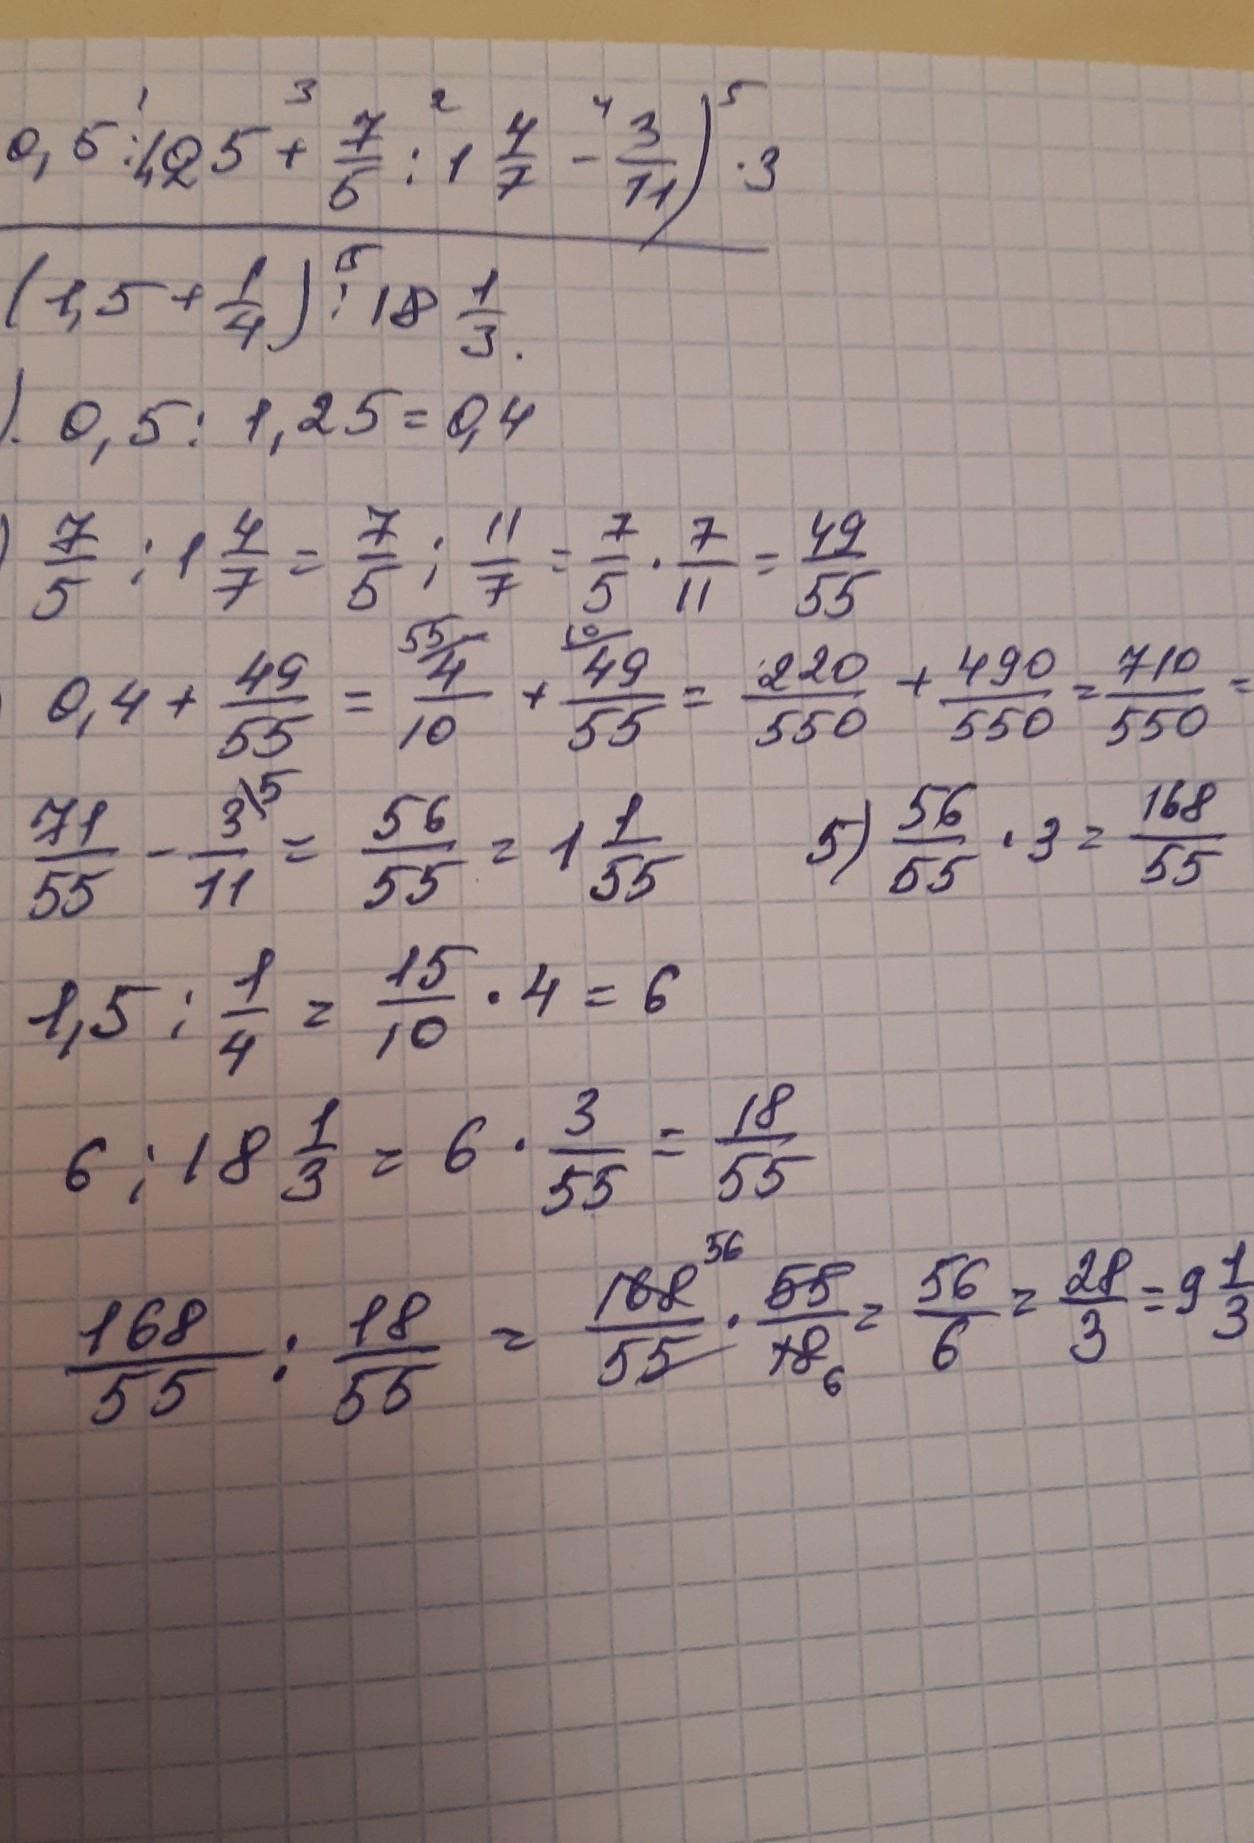 1 3 2 4 5
0,5 : 1,25 + 7/5 : 1 4/7 - 3/11) · 3
(1,5 + 1/4) : 18 1/3.
). 0,5 : 1,25 = 0,4
) 7/5 : 1 4/7 = 7/5 : 11/7 = 7/5 · 7/11 = 49/55
) 0,4 + 49/55 = 55/ 4/10 + 10/ 49/55 = 220/550 + 490/550 = 710/550 =
71/55 - 3\5/11 = 56/55 = 1 1/55 5) 56/55 · 3 = 168/55
1,5 : 1/4 = 15/10 · 4 = 6
6 : 18 1/3 = 6 · 3/55 = 18/55
168/55 : 18/55 = 168 56/55 · 55/18 6 = 56/6 = 28/3 = 9 1/3